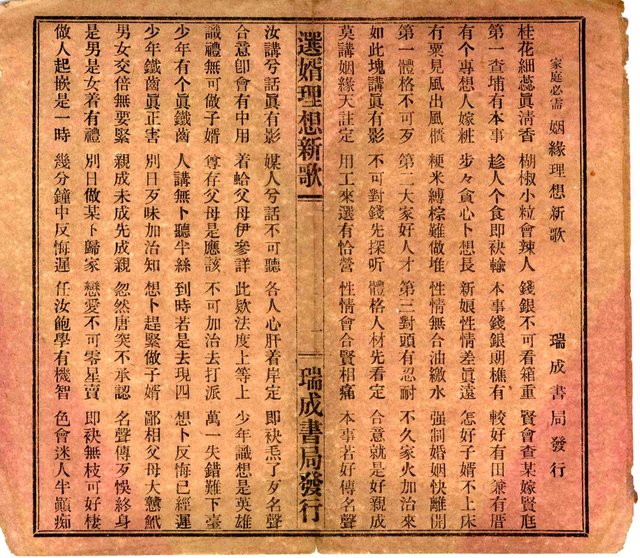 家庭必需 姻緣理想新歌 瑞成書局發行
桂花細蕊眞清香 楜椒小粒會辣人 錢銀不可看箱重 賢會查某嫁賢尫
第一查埔有本事 趁人个食即袂輸 本事錢銀胡樵有 較好有田兼有厝
有个專想人嫁粧 步々貪心卜想長 新娘性情差眞遠 怎好子婿不上床
有粟見風出風櫃 粳米縛粽難做堆 性情無合油繳水 強制婚姻快離開
第一體格不可歹 第二大家好人才 第三對頭有忍耐 不久家火加治來
如此塊講眞有影 不可對錢先探听 體格人材先看定 合意就是好親成
莫講姻緣天註定 用工來選有恰營 性情會合賢相痛 本事若好傳名聲
選婿理想新歌 一 瑞成書局發行
汝講兮話眞有影 媒人兮話不可聽 各人心肝着岸定 即袂悉了歹名聲
合意卽會有中用 着蛤父母伊參詳 此欵法度上等上 少年識想是英雄
識禮無可做子婿 尊存父母是應該 不可加治去打派 萬一失錯難下臺
少年有个眞鐵齒 人講無卜聽半絲 到時若是去現四 想卜反悔已經遲
少年鐵齒眞正害 別日歹味加治知 想卜趕緊做子婿 鄙相父母大戇
男女交倍無要緊 親成未成先成親 忽然唐突不承認 名聲傳歹悞終身
是男是女着有禮 別日做某卜歸家 戀愛不可零星賣 即袂無枝可好棲
做人起嵌是一時 幾分鐘中反悔遲 任汝飽學有機智 色會迷人半顚痴